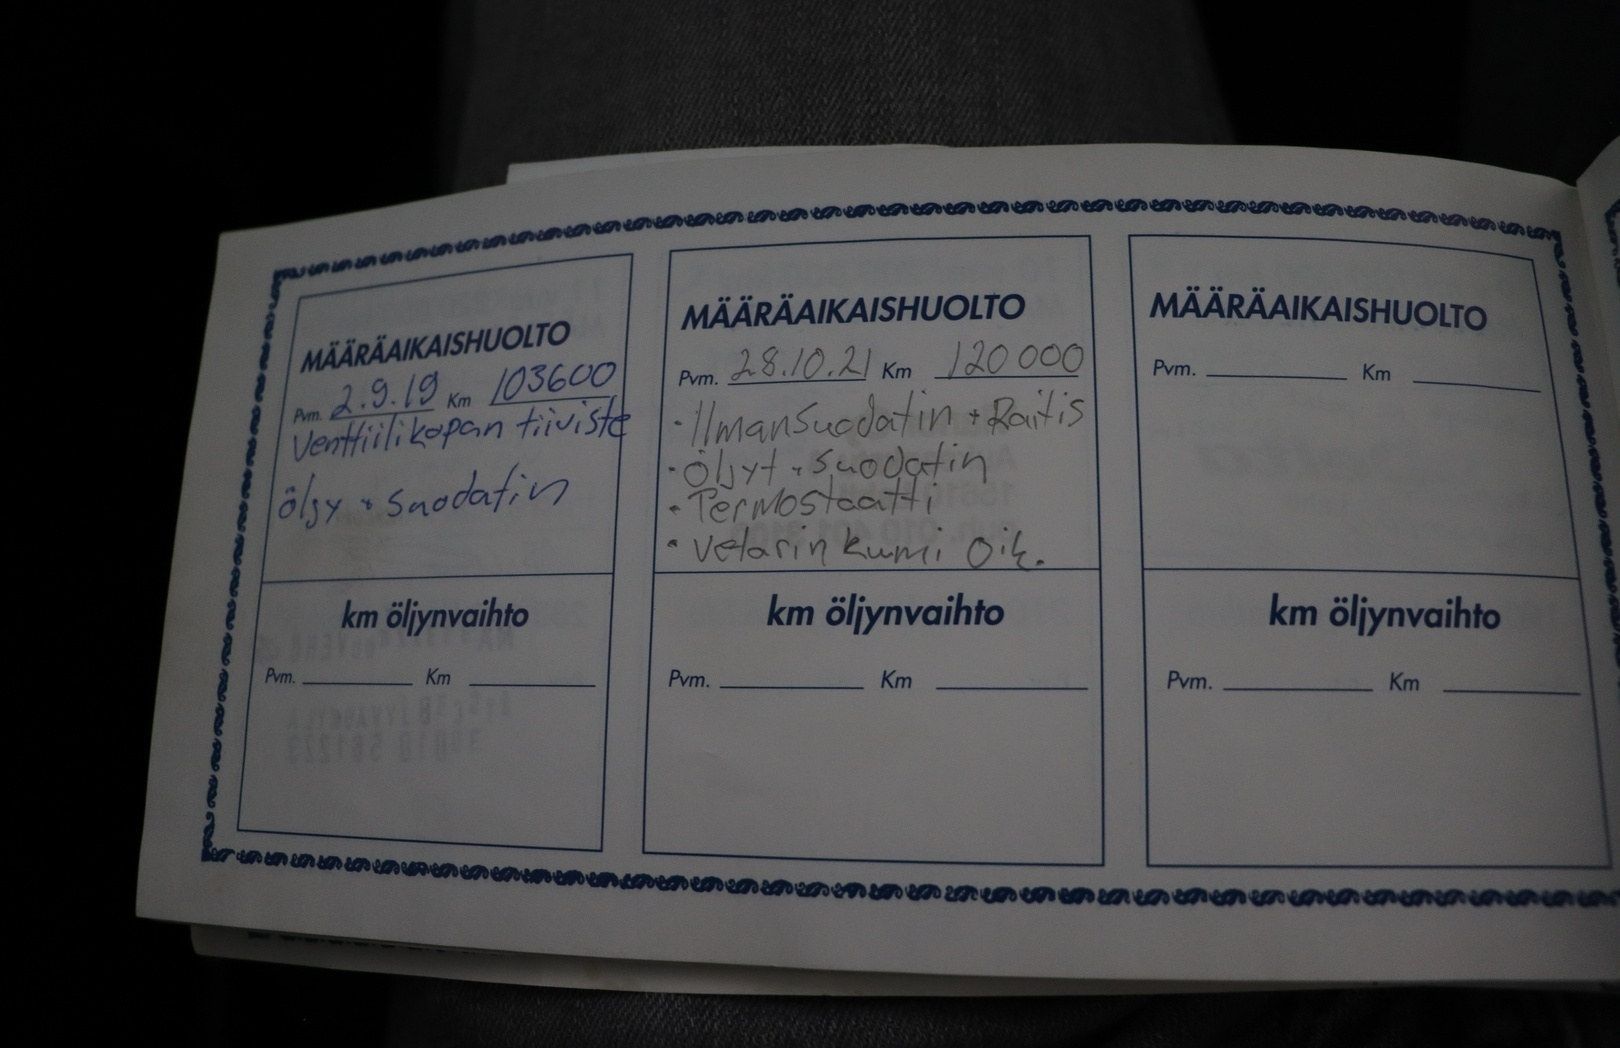 MÄÄRÄAIKAISHUOLTO
Pvm. 2.9.19 Km 103600
Venttiilikopan tiiviste
öljy + suodatin
km öljynvaihto
Pvm. Km
MÄÄRÄAIKAISHUOLTO
Pvm. 28.10.21 Km 120 000
• Ilmansuodatin + Raitis
• Öljyt + suodatin
• Termostaatti
• Vetarin kumi Oik.
km öljynvaihto
Pvm. Km
MÄÄRÄAIKAISHUOLTO
Pvm. Km
km öljynvaihto
Pvm. Km